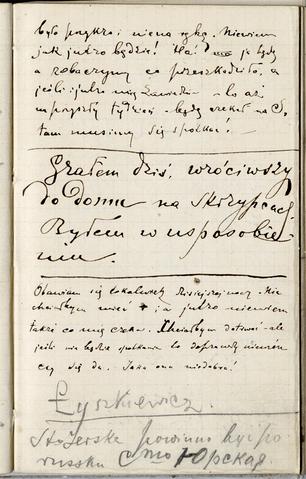 było przykro i nieną rękę. Niewiem
jak jutro będzie! Ha! to je będę
a zobaczymy co przeszkodziło, a
jeśli i jutro mię zawiedzie – to aż
na przyszły tydzień – będę czekał na S,
tam musimy się spotkać! –
Grałem dziś, wróciwszy
do domu na skrzypcach.
Byłem w usposobie
niu.
Obawiam się dzisiejszej nocy. Nie
chciałbym mieć i a jutro niewiem
także co mię czeka. Chciałbym dotrwać ale
jeśli nie będzie spotkania to doprawdy niewiem
czy się da. Jaka ona niedobra!
Łyszkiewicz.
Stożerska powinno być po
russku Сто Юрская.